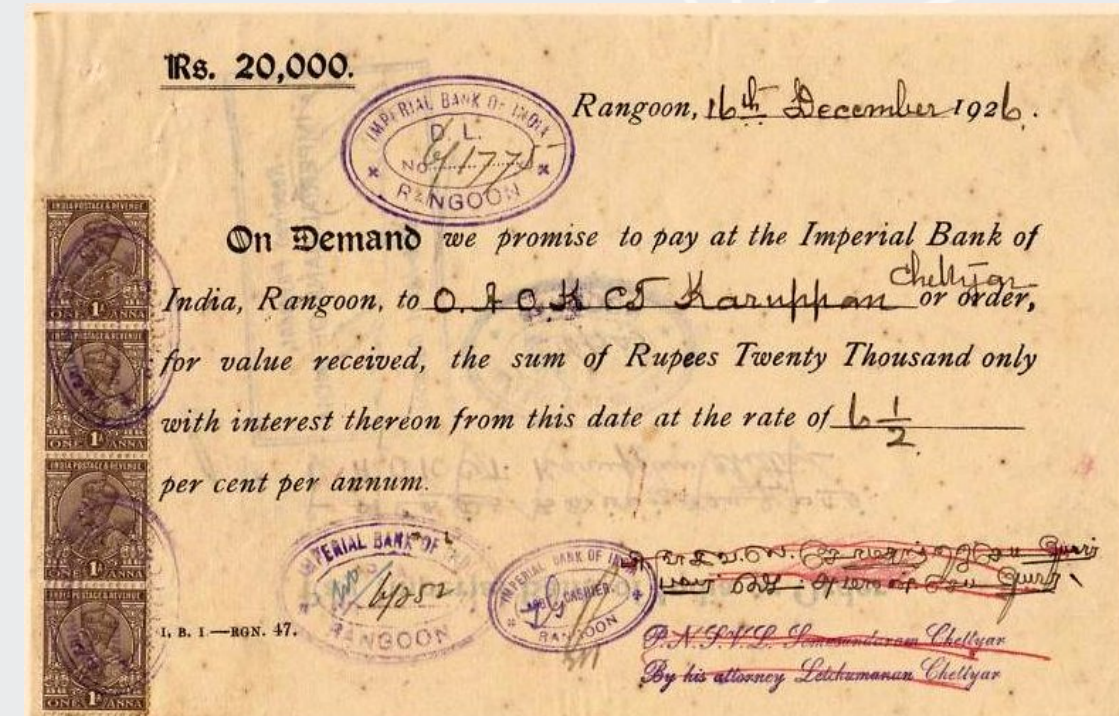 Rs. 20,000.
IMPERIAL BANK OF INDIA
D. L.
No. 6/1775
RANGOON
Rangoon, 16th December 1926.
On Demand we promise to pay at the Imperial Bank of
Chettyar
India, Rangoon, to O. A. O. K. CT Karuppan or order,
for value received, the sum of Rupees Twenty Thousand only
with interest thereon from this date at the rate of 6 1/2
per cent per annum.
INDIA POSTAGE & REVENUE
ONE 1A ANNA
ONE 1A ANNA
INDIA POSTAGE & REVENUE
ONE 1A ANNA
ONE 1A ANNA
IMPERIAL BANK OF
RANGOON
IMPERIAL BANK OF INDIA
CASHIER.
RANGOON
I. B. I.—RGN. 47.
P. N. S. V. L. Somasundaram Chettyar
By his attorney Letchumanan Chettyar